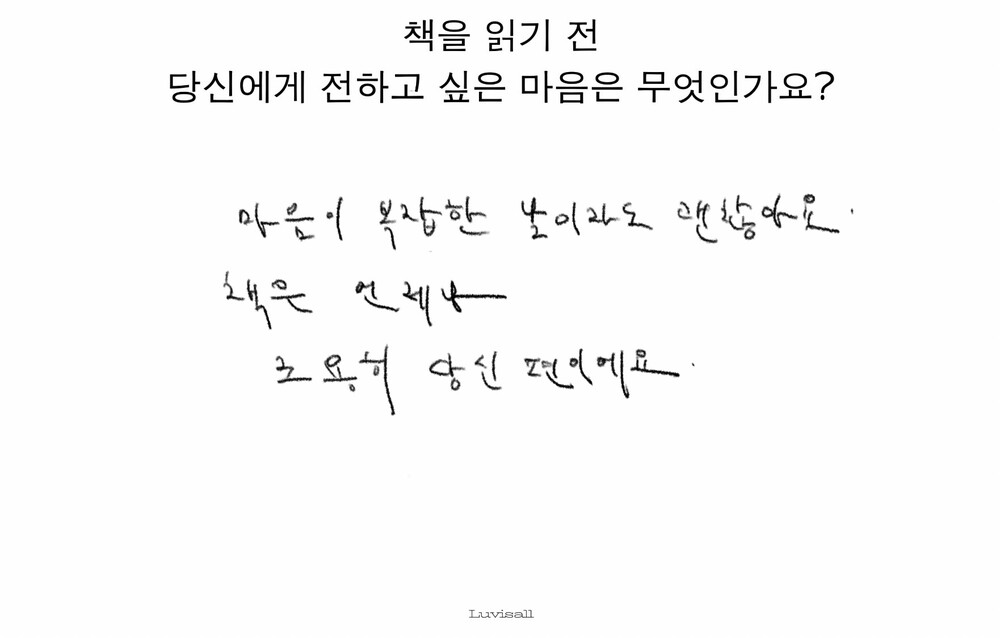 책을 읽기 전
당신에게 전하고 싶은 마음은 무엇인가요?
마음이 복잡한 날이라도 괜찮아요.
책은 언제나
조용히 당신 편이에요.
Luvisall